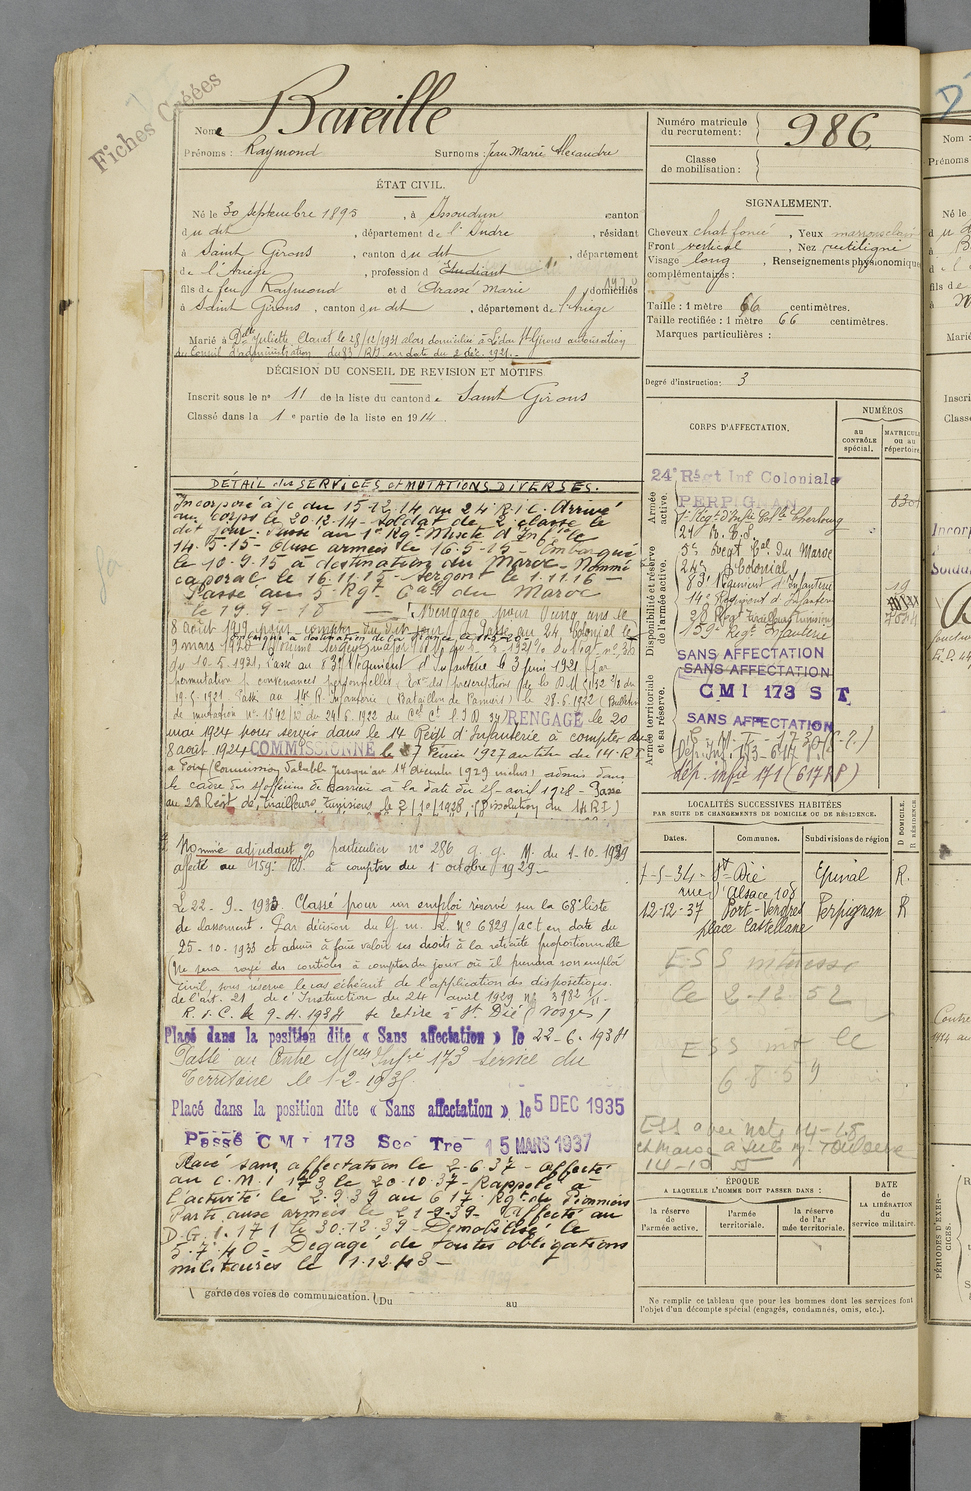 Fiches Créées
Nom Bareille
Prénoms : Raymond Surnoms : Jean Marie Alexandre
Numéro matricule du recrutement : 986
Classe de mobilisation :
ÉTAT CIVIL.
Né le 30 septembre 1895, à Issoudun canton
du dit, département de l'Indre, résidant
à Saint Girons, canton du dit, département
de l'Ariège, profession d Etudiant
fils de feu Raymond et d Crassé Marie domiciliés
à Saint Girons, canton du dit, département de l'Ariège
Marié à Dlle Juliette Claret le 28/12/1921 alors domiciliée à Lédar St Girons autorisation
du Conseil d'administration du 83e RI en date du 2 déc. 1921.
SIGNALEMENT.
Cheveux chat foncé, Yeux marron clair
Front vertical, Nez rectiligne
Visage long, Renseignements physionomiques
complémentaires :
Taille : 1 mètre 66 centimètres.
Taille rectifiée : 1 mètre 66 centimètres.
Marques particulières :
Degré d'instruction : 3
DÉCISION DU CONSEIL DE REVISION ET MOTIFS
Inscrit sous le n° 11 de la liste du canton de Saint Girons
Classé dans la 1e partie de la liste en 1914.
DÉTAIL des SERVICES et MUTATIONS DIVERSES.
Incorporé à/c du 15.12.14 au 24 R.I.C. Arrivé
au corps le 20.12.14 - soldat de 2e classe le
dit jour. Passé au 1er Rgt Mixte d'Inf Cle
14.5.15 - aux armées le 16.5.15 - Embarqué
le 10.9.15 à destination du Maroc - Nommé
caporal le 16.11.15 - sergent le 1.11.16 -
Passé au 5e Rgt Cal du Maroc
le 19.9-18 - Rengagé pour cinq ans le
8 août 1919 pour compter du dit jour. Passé au 24 Colonial le
Embarqué à destination de la France le
9 mars 1920 Nommé sergent major
du 10-5-1921, Passé au 83e Régiment d'Infanterie le 3 juin 1921 par
permutation p. convenances personnelles
19-5-1921 Passé au 14e R. Infanterie (Bataillon de Pamiers) le 28.6.1922 (Bulletin
de mutation n° 1892/10 du 24/6.1922 RENGAGÉ le 20
mai 1924 pour servir dans le 14 Régt d'Infanterie à compter du
8 août 1924 COMMISSIONNÉ le 7 Février 1927 au titre du 14e R.I
à Foix (Commission valable jusqu'au 14 décembre 1929 inclus) admis dans
le cadre des s/officiers de carrière à la date du 25 avril 1928 - Passé
au 28 Régt de Tirailleurs Tunisiens le 2/10/1928 (Dissolution du 14 R.I)
Nommé adjudant particulier n° 286 du 1-10-1929
affecté au 159e RI. à compter du 1er octobre 1929 -
Le 22-9-1933 Classé pour un emploi réservé sur la 68e liste
de classement. Par décision du G.M.R. n° 6829/act en date du
25-10-1933 est admis à faire valoir ses droits à la retraite proportionnelle
(Ne sera rayé des contrôles à compter du jour où il prendra son emploi
civil, sous réserve le cas échéant de l'application des dispositions
de l'art. 21 de l'Instruction du 24 avril 1929 n° 3982/
R.d.C. le 9-4.1934 se retire à St Dié (Vosges)
Placé dans la position dite « Sans affectation » le 22-6-1934
Passé au Centre Mobr Infrie 173 Service du
Territoire le 1-2-1935.
Placé dans la position dite « Sans affectation » le 5 DEC 1935
Passé C M I 173 Sce Tre 15 MARS 1937
Placé sans affectation le 2-6.37 - Affecté
au C.M.I 173 le 20-10.37 - Rappelé à
l'activité le 2.9.39 au 617 Rgt de Pionniers
Parti aux armées le 21-9-39 - Affecté au
D.G.I. 171 le 30.12.39 - Démobilisé le
5.7.40 = Dégagé de toutes obligations
militaires le 1.12.43 -
garde des voies de communication. Du au
CORPS D'AFFECTATION.
NUMÉROS
au CONTRÔLE spécial.
MATRICULE ou au répertoire.
Armée active.
Disponibilité et réserve de l'armée active.
Armée territoriale et sa réserve.
24e Régt Inf Coloniale
PERPIGNAN 8301
1er Régt d'Infie Colle Cherbourg
5e Régt Cal du Maroc
24e Colonial
83e Régiment d'Infanterie
14e Régiment d'Infanterie
28 Régt Tirailleurs Tunisiens
159e Régt Infanterie
SANS AFFECTATION
SANS AFFECTATION
CMI 173 S T
SANS AFFECTATION
C.M.I - 173
Dép. Inf. 173 - 617
Dép. Infie 171 (617 RP)
LOCALITÉS SUCCESSIVES HABITÉES
PAR SUITE DE CHANGEMENTS DE DOMICILE OU DE RÉSIDENCE.
Dates. Communes. Subdivisions de région
D DOMICILE. R RÉSIDENCE.
7-5-34 - St-Dié Epinal R.
rue d'Alsace 108
12-12-37 Port-Vendres Perpignan R
place Castellane
le 2-12 52
14-10 55
ÉPOQUE
A LAQUELLE L'HOMME DOIT PASSER DANS :
DATE DE LA LIBÉRATION du service militaire.
la réserve de l'armée active.
l'armée territoriale.
la réserve de l'armée territoriale.
Ne remplir ce tableau que pour les hommes dont les services font
l'objet d'un décompte spécial (engagés, condamnés, omis, etc.).
PÉRIODES D'EXERCICES.